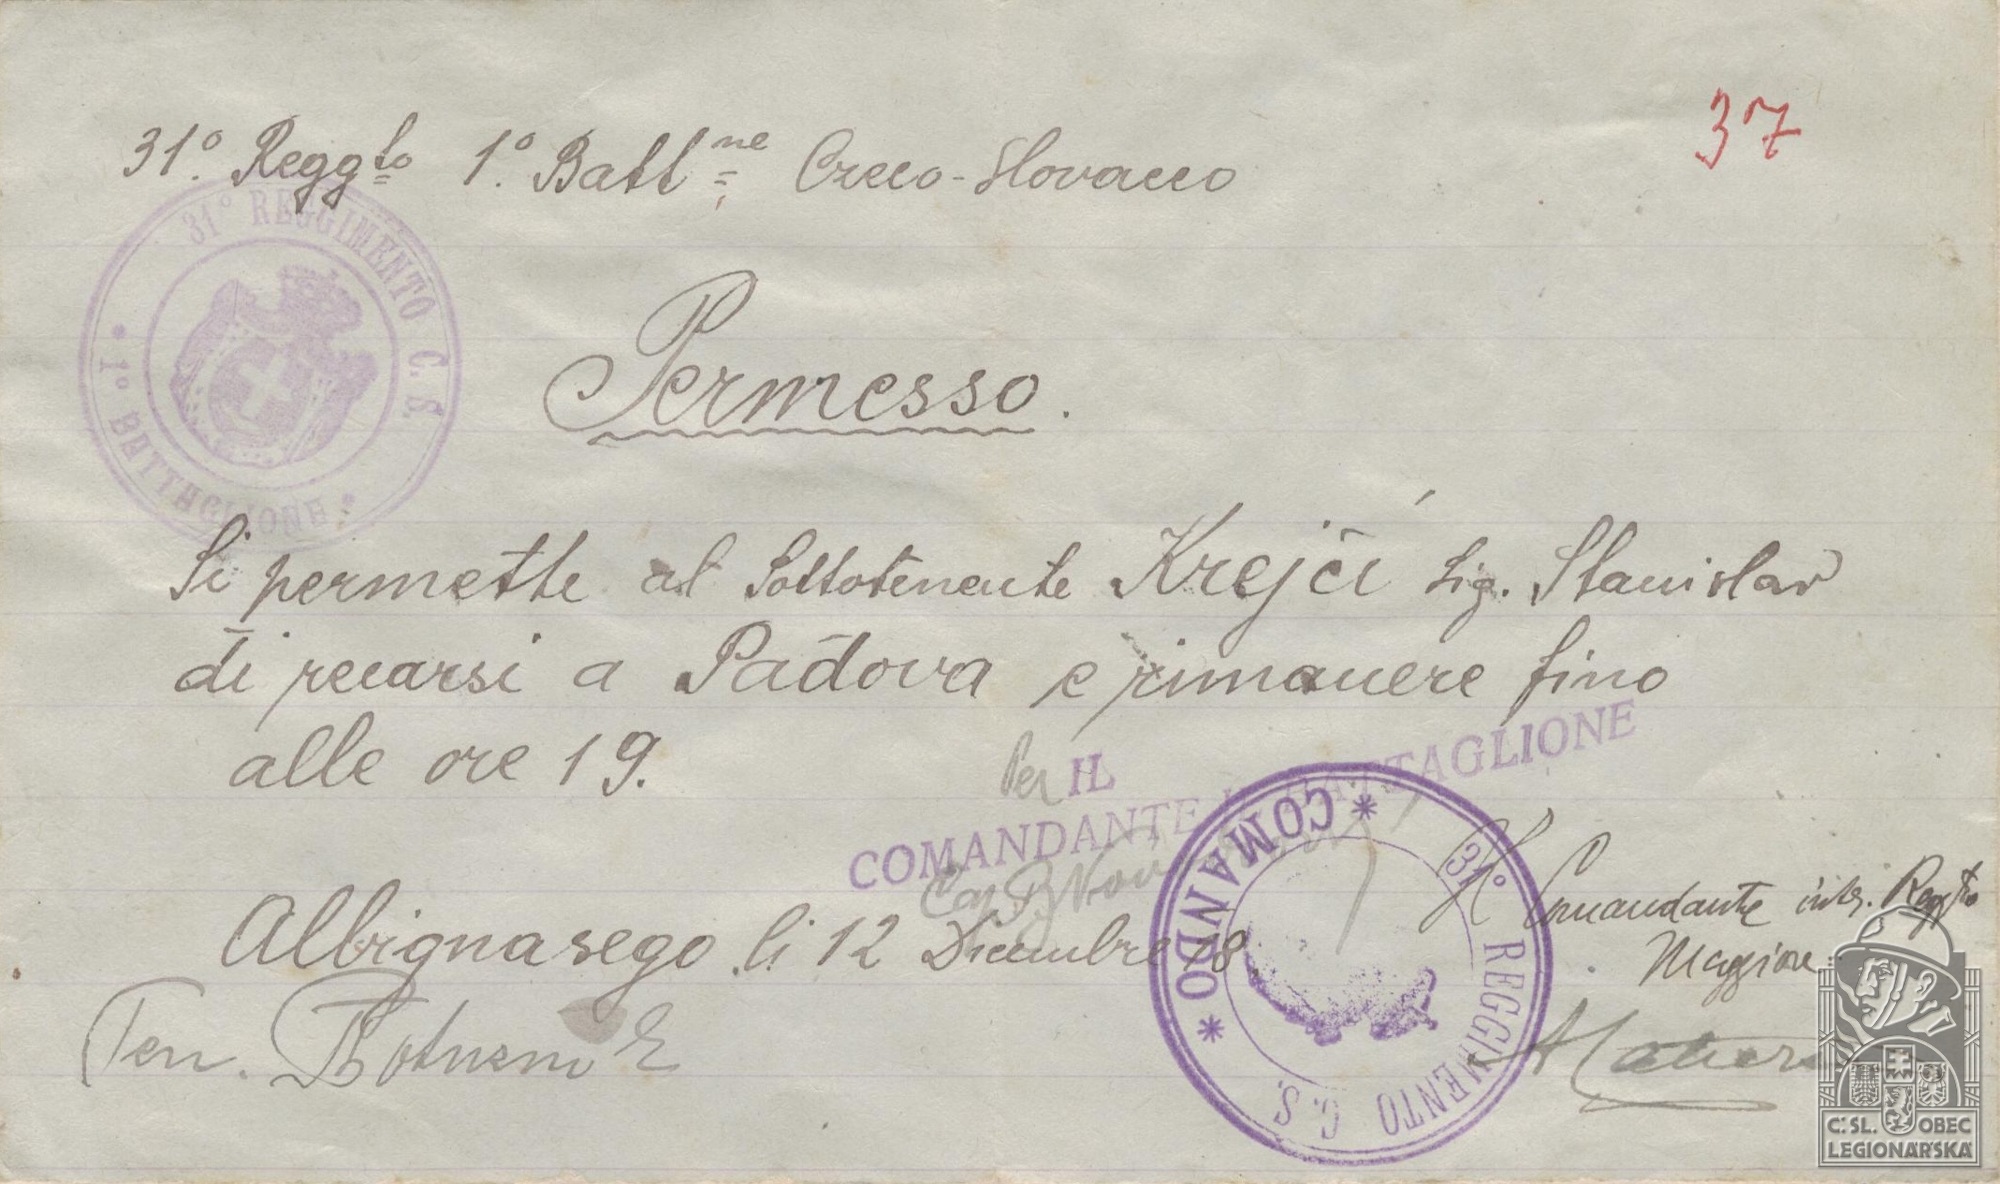 37
31º Reggto 1º Battne Czeco-Slovacco
31º REGGIMENTO C. S.
* 1º BATTAGLIONE *
Permesso.
Si permette al Sottotenente Krejčí sig. Stanislav
di recarsi a Padova e rimanere fino
alle ore 19.
Per IL
COMANDANTE BATTAGLIONE
Cap.
Albignasego li 12 Dicembre 18.
Il Comandante Reggto
Maggiore
Ten.
* COMANDO *
31º REGGIMENTO C. S.
Č. SL. OBEC
LEGIONÁŘSKÁ